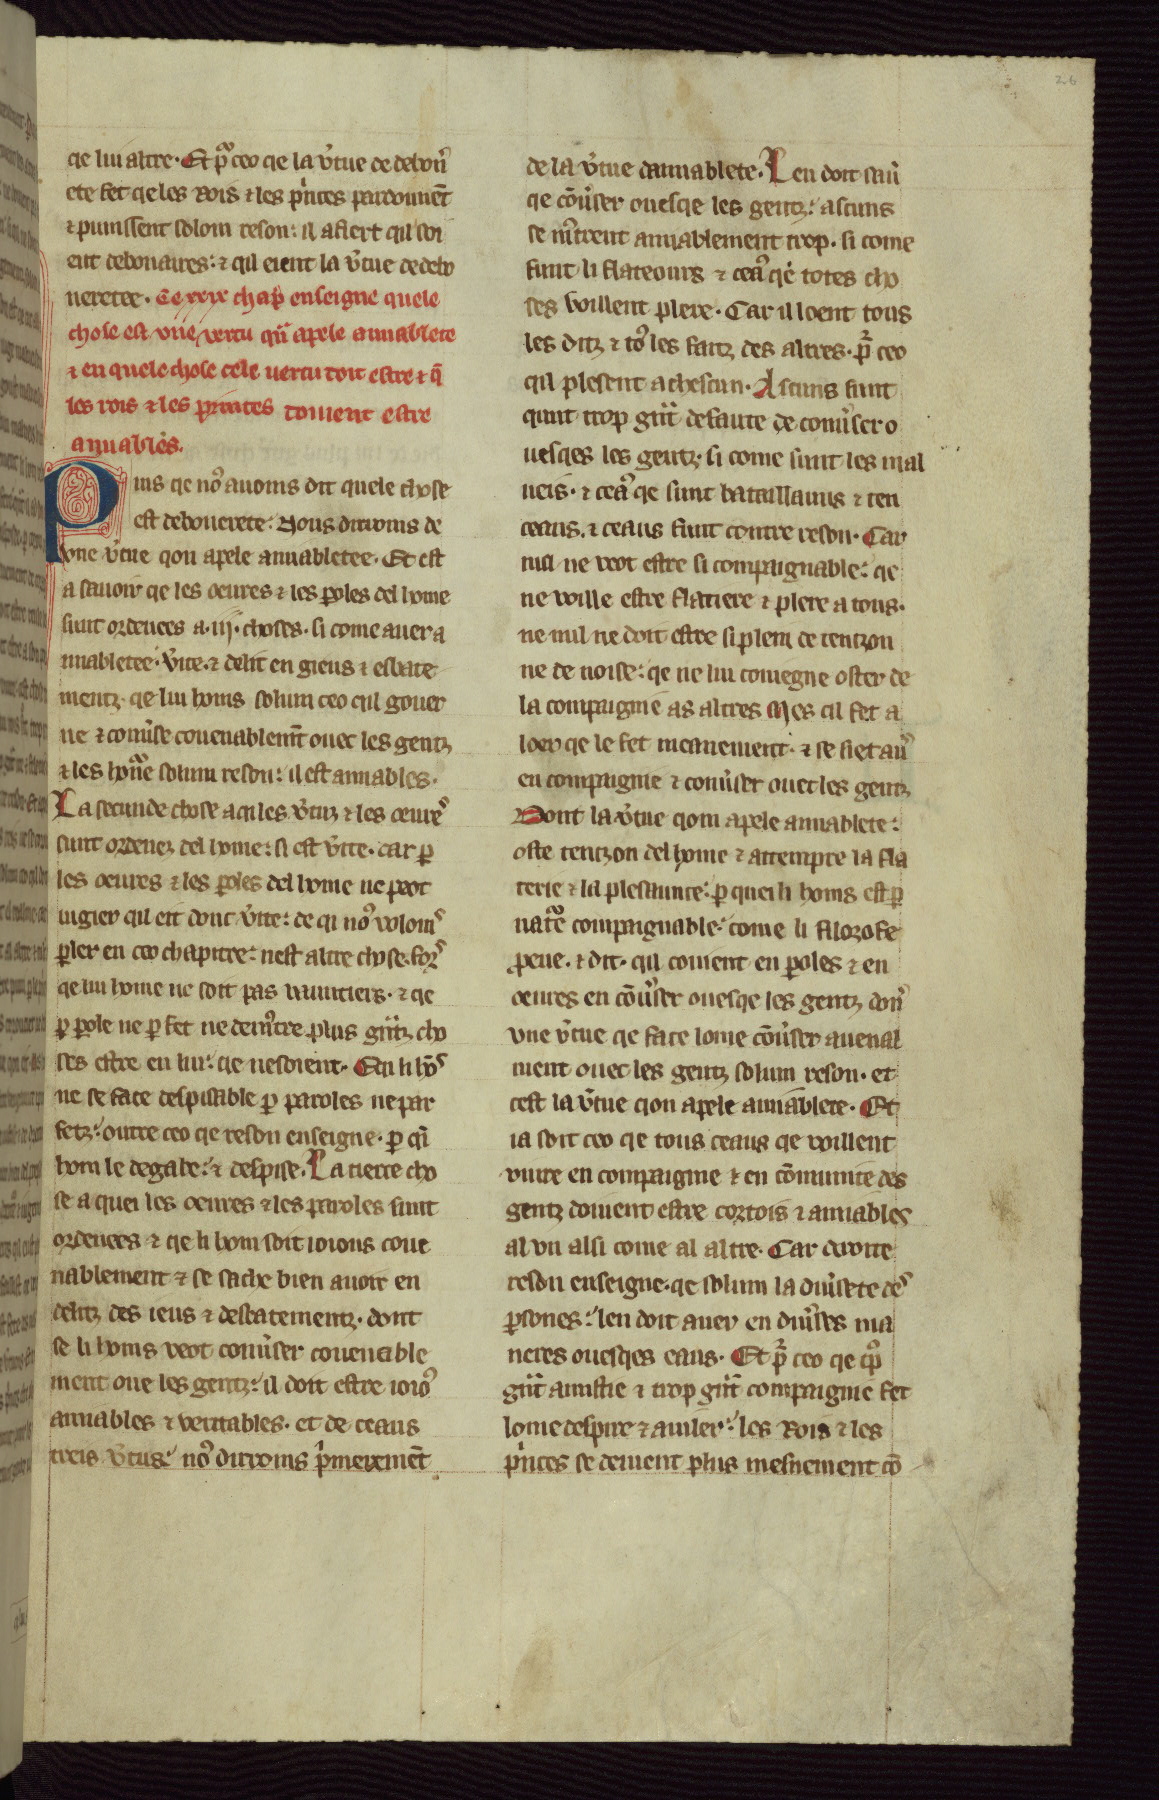 26
qe lui altre. Et pͣ ceo qe la v̾tue de debon̾
ete fet qe les Rois ⁊ les pͥnces pardonnēt
⁊ punissent solom reson: il afiert qil soi
ent debonaires: ⁊ qil eient la v̾tue de debo
neretee. Ce xxix chap̄ enseigne quele
chose est vne vertu qū apele amiablete
⁊ en quele chose cele uertu doit estre ⁊ q̄
les rois ⁊ les princes doiuent estre
amiables.
Puis qe noꝰ auoms dit quele chose
est debonerete: Nous dirroms de
vne v̾tue qon apele amiabletee. Et est
a sauoir qe les oeures ⁊ les ꝑoles del home
sunt ordenees a .iij. choses. si come auer a
miabletee. v̾ite. ⁊ delit en gieus ⁊ esbate
mentz. qe lui homs solum ceo qil gouer
ne ⁊ conu̾se couenablem̄t ouec les gentz
⁊ les honͣe solum reson: il est amiables.
La secunde chose a qi les v̾tuz ⁊ les oeureˢ
sunt ordenez del home: si est v̾ite. car ꝑ
les oeures ⁊ les ꝑoles del home ne peot
iugier qil eit dont v̾ite: de qi noꝰ volomˢ
ꝑler en ceo chapitre: nest altre chose. forˢ
qe lui home ne soit pas vauntiers. ⁊ qe
ꝑ ꝑole ne ꝑ fet ne demr̾tre plus gͣntz cho
ses estre en lui: qe ne soient. En li hōˢ
ne se face despisable ꝑ paroles ne par
fetz: outre ceo qe reson enseigne. ꝑ qi
hom le degabe: ⁊ despise. La tierce cho
se a quei les oeures ⁊ les paroles sunt
ordenees ⁊ qe li hom soit ioious coue
nablement ⁊ se sache bien auoir en
delitz des ieus ⁊ desbatementz. dont
se li homs veot conu̾ser couenable
ment oue les gentz: il doit estre ioioꝰ
amiables ⁊ veritables. et de ceaus
treis v̾tus: noꝰ dirroms pͥmerement
de la v̾tue damiablete. Len doit sau̾
qe cōu̾ser ouesqe les gentz: ascuns
se mr̾trent amiablement trop. si come
sunt li flateours ⁊ ceaꝰ qe totes cho
ses voillent plere. Car il loent tous
les ditz ⁊ toꝰ les faitz des altres. pͣ ceo
qil plesent a chescun. Ascuns sunt
qunt trop gͣnt defaute de conu̾ser o
uesqes les gentz. si come sunt les mal
ueis. ⁊ ceaꝰ qe sunt bataillaus ⁊ ten
ceaus. ⁊ ceaus sunt contre reson. Car
nul ne veot estre si compaignable: qe
ne voille estre flatiere ⁊ plere a tous.
ne nul ne doit estre si plein de tentzon
ne de noise: qe ne lui couiegne oster de
la compaignie as altres Mes cil fet a
loer qe le fet meienement. ⁊ se siet au̾
en compaignie ⁊ conu̾ser ouec les gentz
Dont la v̾tue qom apele amiablete:
oste tentzon del home ⁊ attempre la fla
terie ⁊ la plesaunce: ꝑ quei li homs est ꝑ
natͣe compaignable: come li filozofe
ꝓeue. ⁊ dit. qil couient en ꝑoles ⁊ en
oeures en cōu̾ser ouesqe les gentz don̾
vne v̾tue qe face lome cōu̾ser auenal
ment ouec les gentz solum reson. et
cest la v̾tue qon apele amiablete. Et
ia soit ceo qe tous ceaus qe voillent
viure en compaignie ⁊ en cōmunite des
gentz doiuent estre cortois ⁊ amiables
al vn alsi come al altre. Car droite
reson enseigne. qe solum la diu̾sete deˢ
ꝑsones: len doit auer en diu̾ses ma
neres ouesqes eaus. Et pͣ ceo qe tͦp
gͣnt amistie ⁊ trop gͣnt compaignie fet
lome despire ⁊ auiler: les Rois ⁊ les
pͥnces se deiuent plus mesnement cō